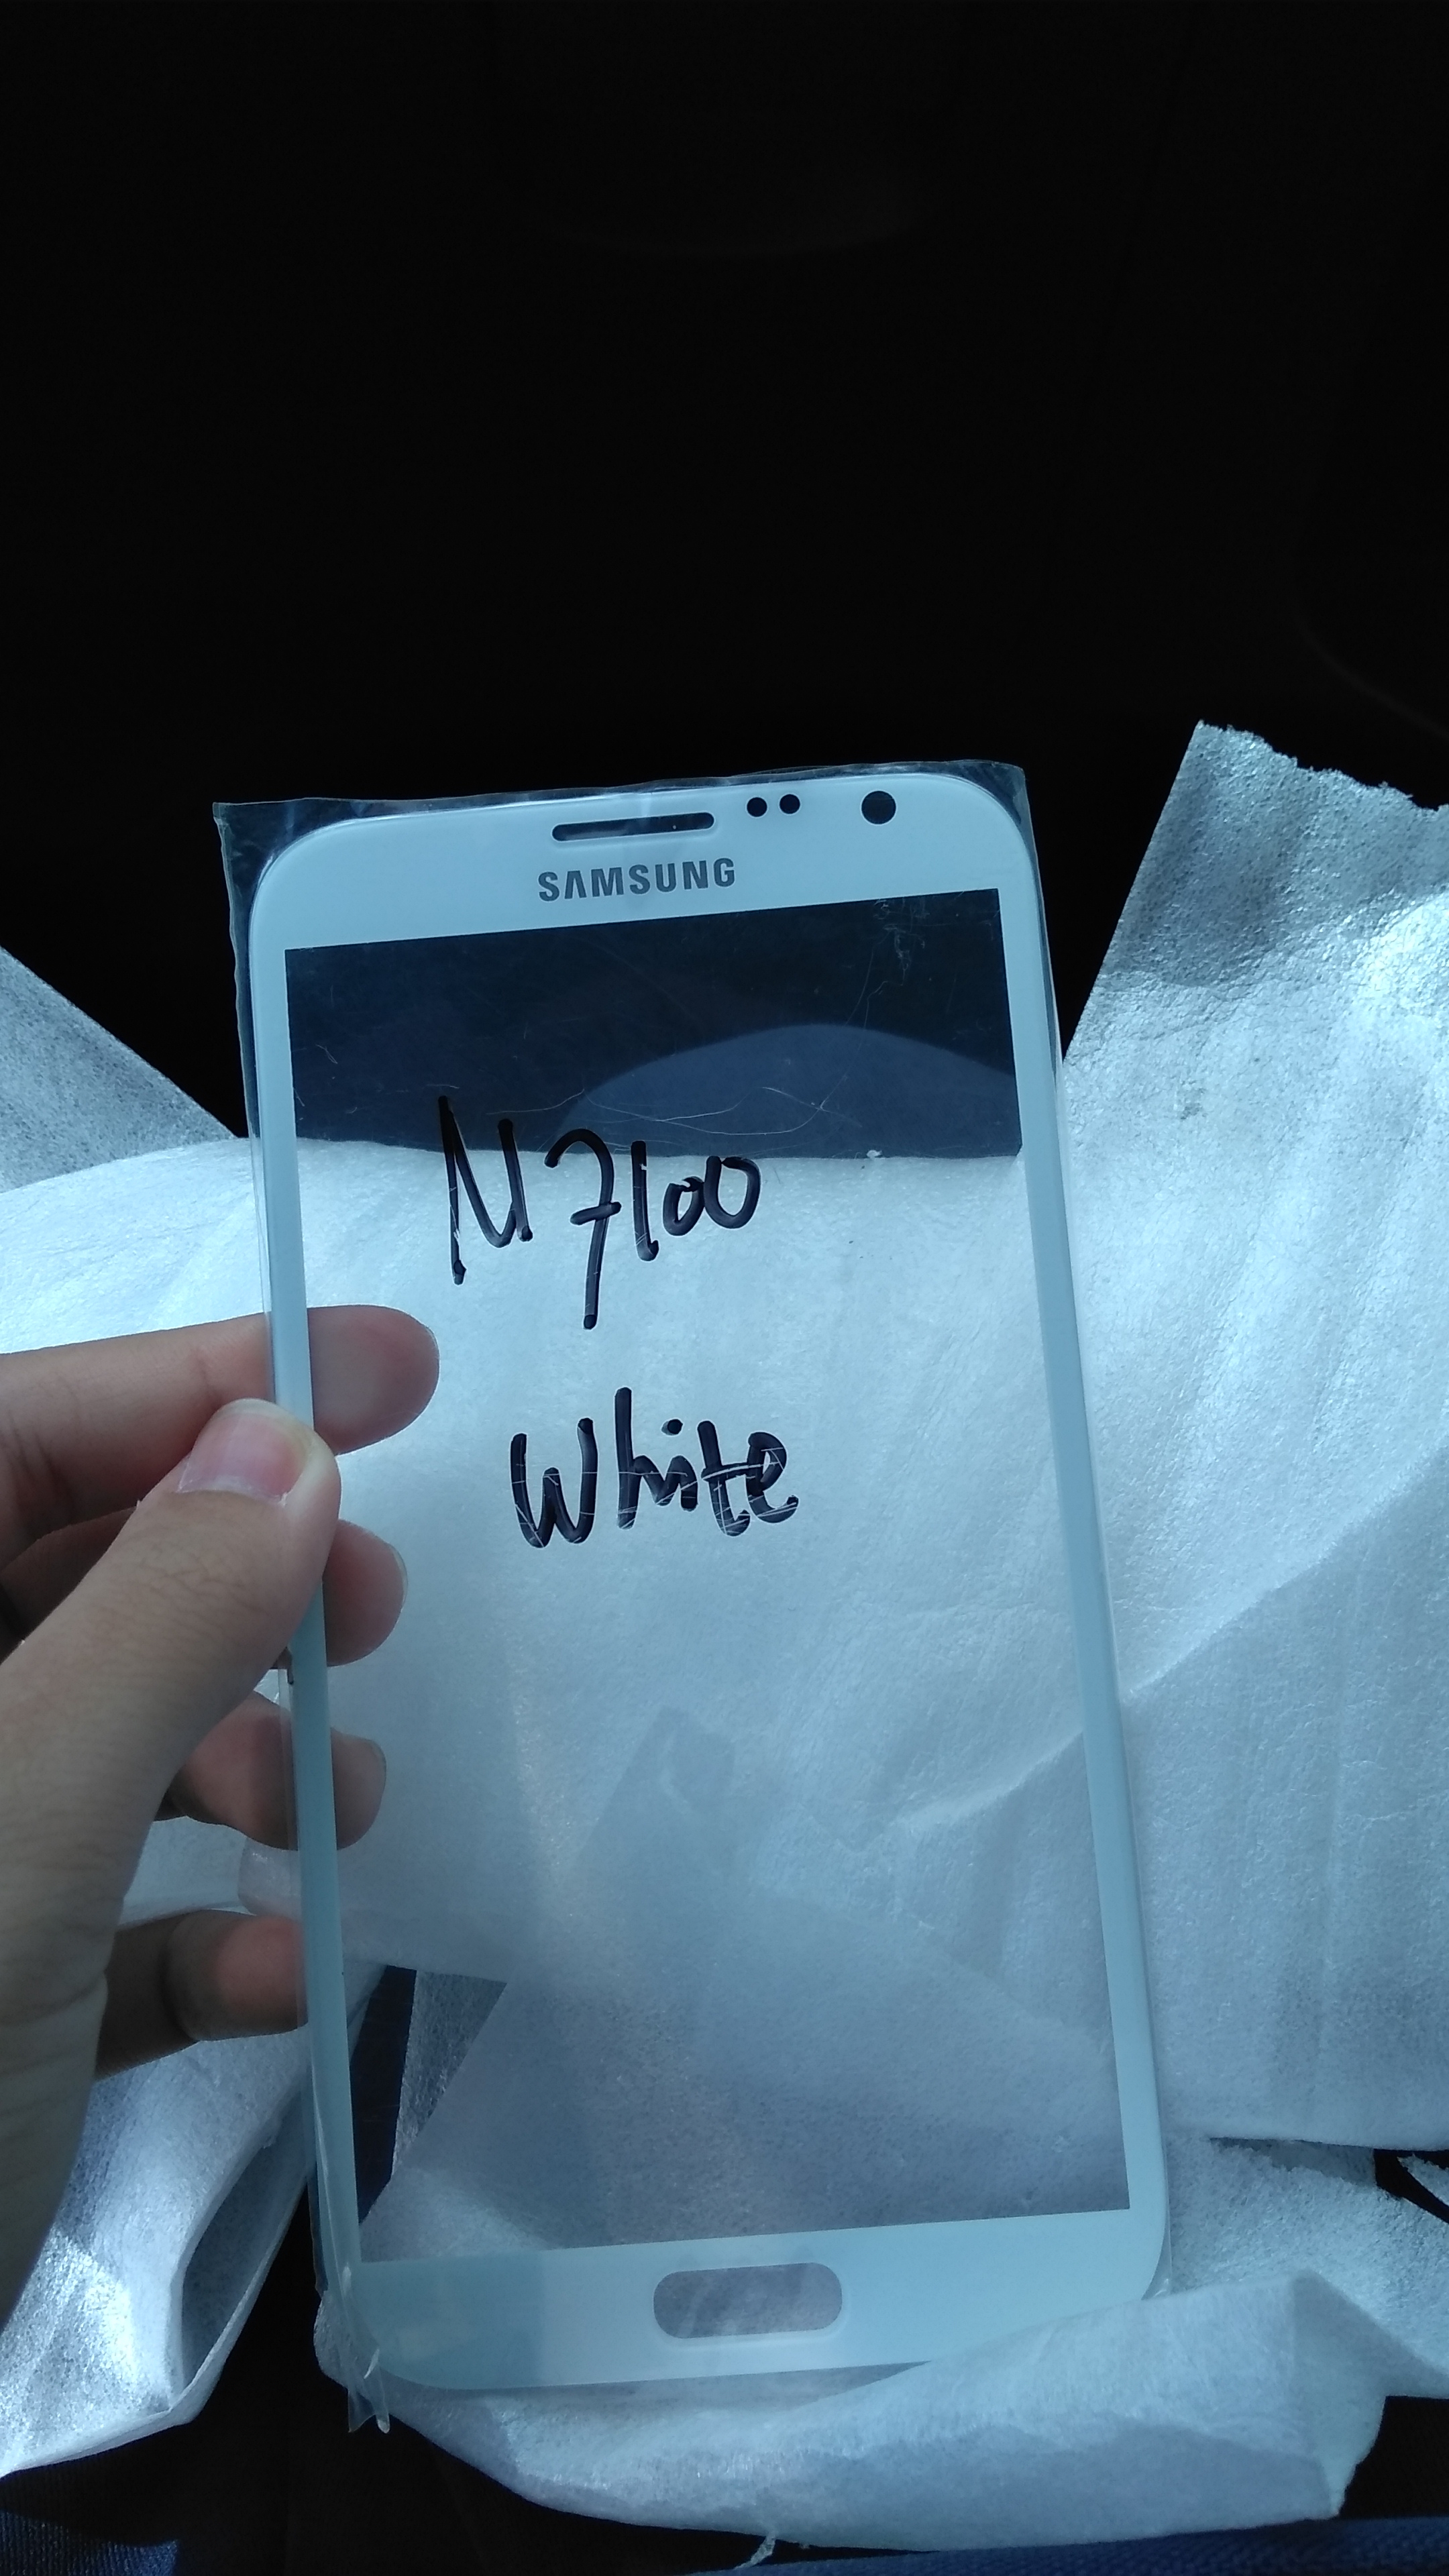 SAMSUNG
N7100
White